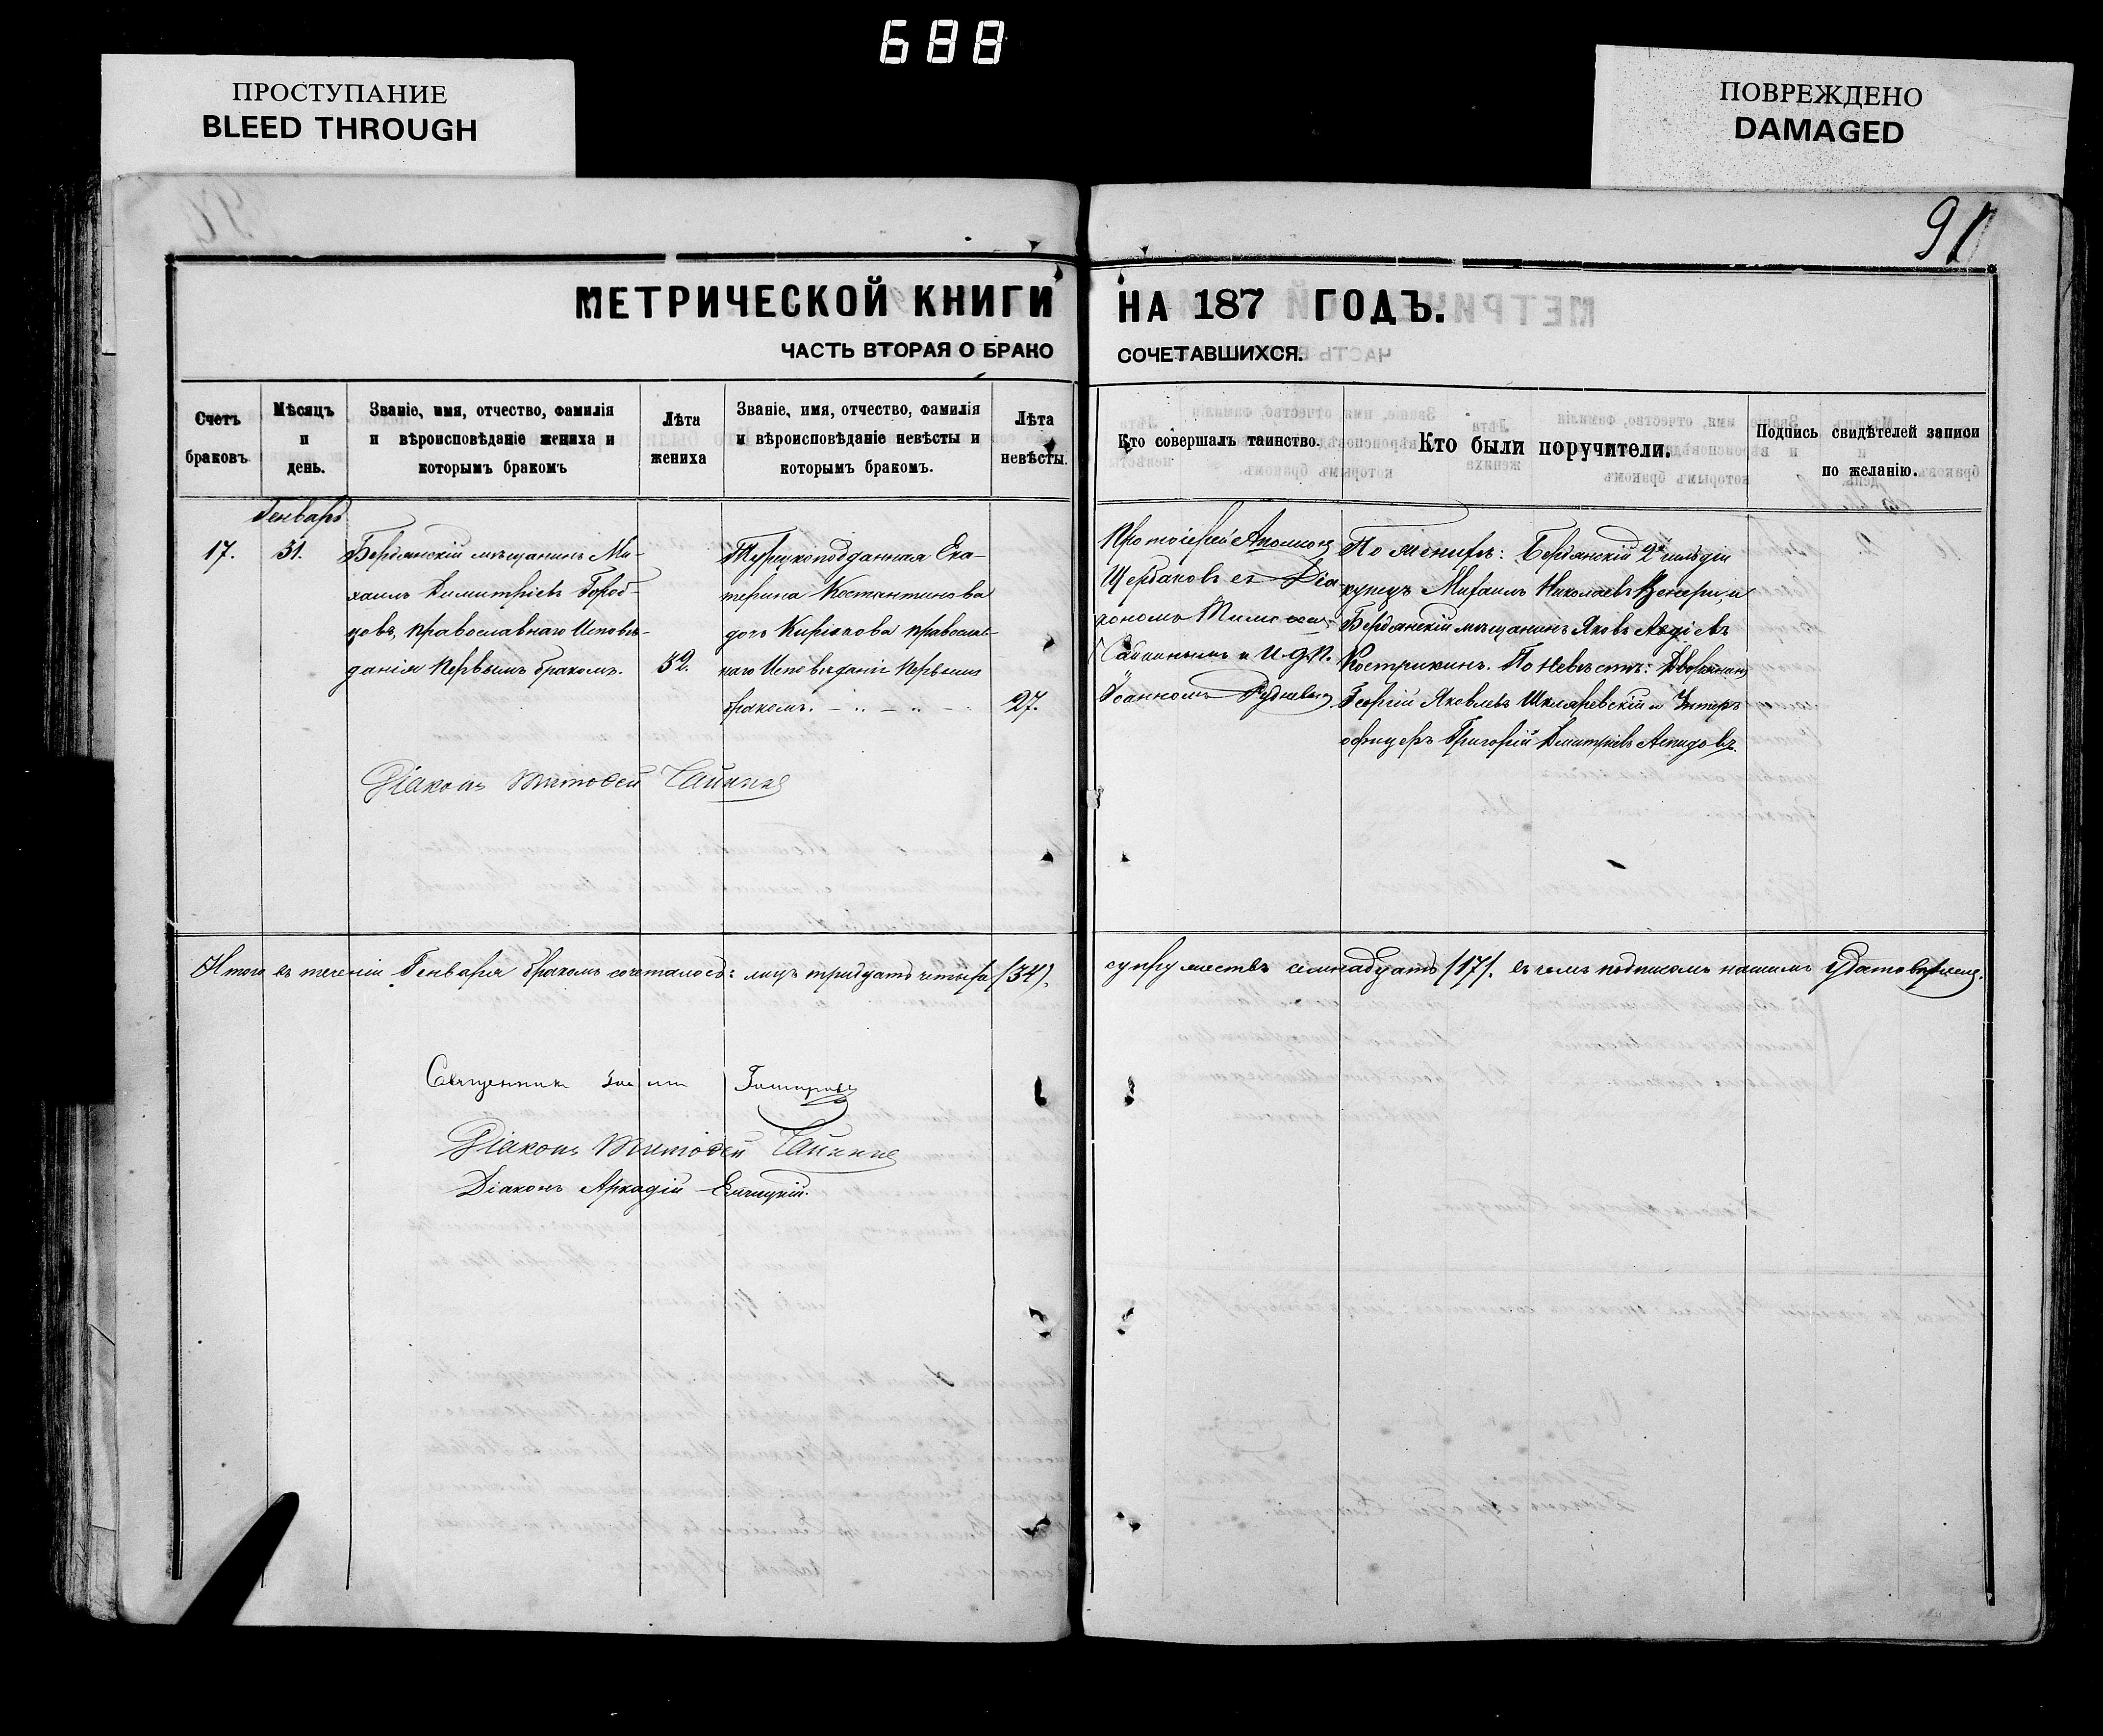 688
ПРОСТУПАНИЕ
BLEED THROUGH
ПОВРЕЖДЕНО
DAMAGED
МЕТРИЧЕСКОЙ КНИГИ
НА 187 ГОДЪ.
ЧАСТЬ ВТОРАЯ О БРАКО
СОЧЕТАВШИХСЯ.
Счетъ
браковъ.
Мѣсяцъ
и
день.
Званіе, имя, отчество, фамилія
и вѣроисповѣданіе жениха и
которымъ бракомъ
Лѣта
жениха
Званіе, имя, отчество, фамилія
и вѣроисповѣданіе невѣсты и
которымъ бракомъ.
Лѣта
невѣсты.
Кто совершалъ таинство.
Кто были поручители.
Подпись свидѣтелей записи
по желанію.
Генварь
17.
31.
Бердянскій мѣщанинъ Ми-
хаилъ Димитріевъ Город-
цовъ, православнаго Исповѣ-
данія первымъ бракомъ.
32.
Турецкоподданная Ека-
терина Костантинова
дочь Киріякова православ-
наго Исповѣданія первымъ
бракомъ.
27.
Протоіерей
Щербаковъ съ Діа-
кономъ
и И. Д. П.
Іоанномъ Рудневымъ
По женихѣ: Бердянскій 2й гильдіи
купецъ Михаилъ Николаевъ и
Бердянскій мѣщанинъ Яковъ Авдіевъ
Кострикинъ. По невѣстѣ: Дворянинъ
Георгій Яковлевъ Шкляревскій и Унтеръ
офицеръ Григорій Дмитріевъ
Діаконъ Тимоѳей Чайкинъ
Итого въ теченіи Генваря бракомъ сочеталось: лицъ тридцать четыре (34).
супружествъ семнадцать (17). въ чемъ подписомъ нашимъ удостовѣряемъ.
Священникъ
Діаконъ Тимоѳей Чайкинъ
Діаконъ Аркадій